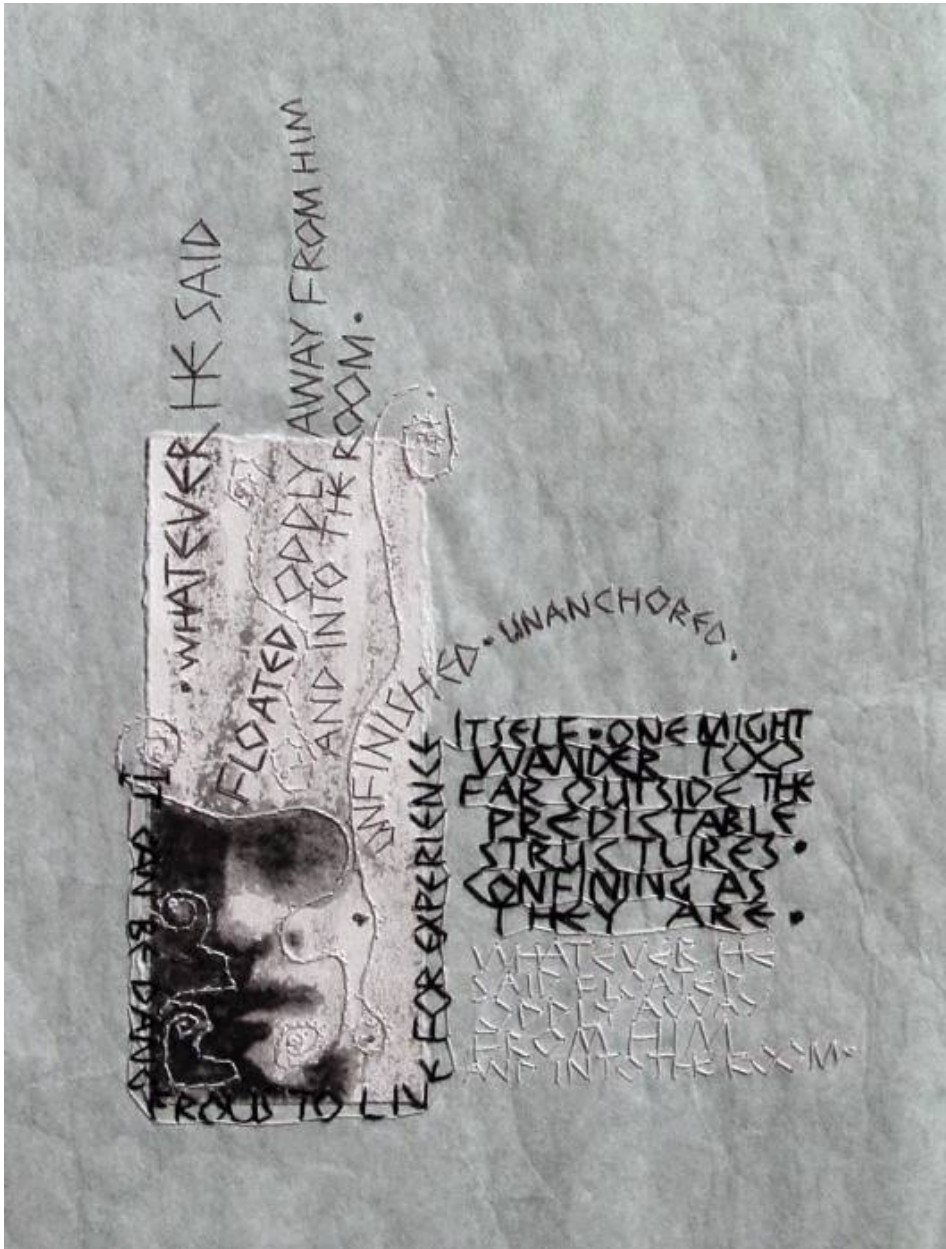 ·WHATEVER HE SAID
FLOATED ODDLY AWAY FROM HIM
AND INTO THE ROOM·
UNFINISHED·UNANCHORED.
IT CAN BE DANG
EROUS TO LIV
E FOR EXPERIENCE
ITSELF·ONE MIGHT
WANDER TOO
FAR OUTSIDE THE
PREDICTABLE
STRUCTURES·
CONFINING AS
THEY ARE·
WHATEVER HE
SAID FLOATED
ODDLY AWAY
FROM HIM
AND INTO THE ROOM·